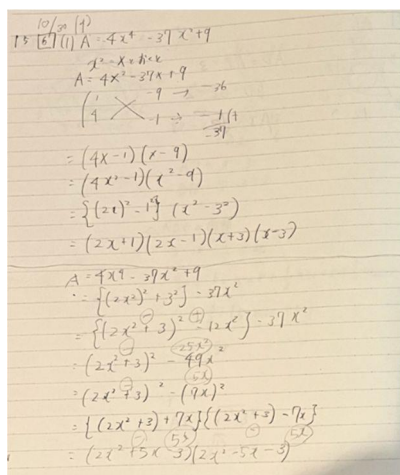 10/30 (月)
15 [6] (1) A = 4x⁴ - 37x² + 9
A = 4x² - 37x + 9
1 -9 → -36
4 -1 → -1 (+
-37
= (4x-1)(x-9)
= (4x²-1)(x²-9)
= {(2x)² - 1²} (x² - 3²)
= (2x+1)(2x-1)(x+3)(x-3)
A = 4x4 - 37x² + 9
= {(2x²)² + 3²} - 37x²
= {(2x² + 3)² - 12x²} - 37x² - +
= (2x² + 3)² - 49x² - 25x²
= (2x² + 3)² - (7x)² - 5x
= {(2x² + 3) + 7x}{(2x² + 3) - 7x}
= (2x² + 5x - 3)(2x² - 5x - 3) - 5x - 5x